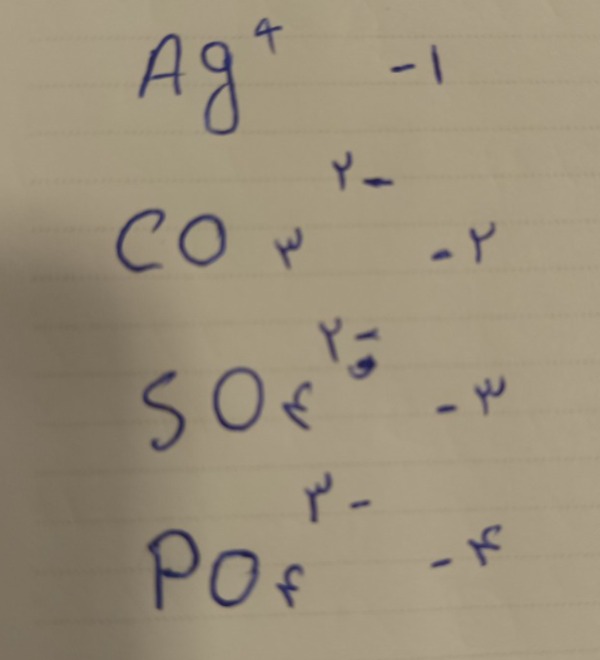 Ag⁺ -1
CO۳ ۲- -۲
SO۴ ۲- -۳
PO۴ ۳- -۴